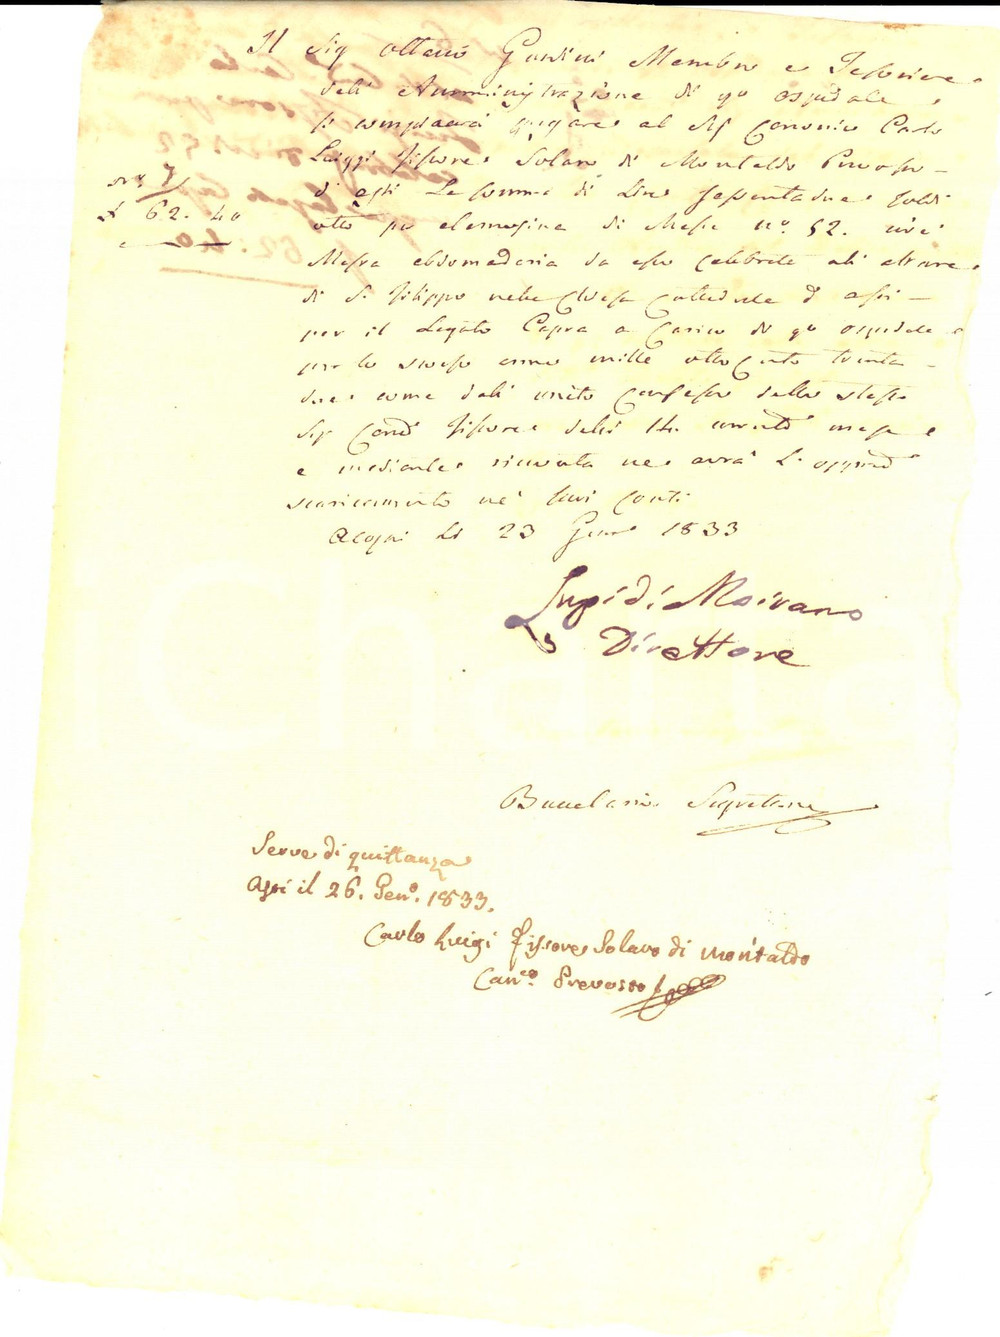 Il Sig Ottavio Guidini Membro e Tesoriere
dell' Amministrazione di qo ospidale
si compiacerà pagare al Sig Canonico Carlo
Luiggi Fissore Solaro di Montaldo Prevosto
d' Asti La somma di Lire sessantadue soldi
otto per elemosina di Messe n.° 52. cioè
Messa ebdomadaria da esso celebrata all' altare
di S. Filippo nella Chiesa Cattedrale d' Asti
per il Legato Capra a Carico di qo ospidale
per lo scorso anno mille otto Cento trenta
due come dall' unito Confesso dello stesso
Sig Cano Fissore delli 14 corrente mese
e mediante ricevuta ne avrà L' opportº
scaricamento ne' suoi Conti
Acqui Li 23 Genn 1833
N° 7
£ 62. 40
Lupi di Moirano
Direttore
Segretaro
Serve di quittanza
Asti il 26. Genº. 1833.
Carlo Luigi Fissore Solaro di Montaldo
Canco. Prevosto
62. 40
iCharta